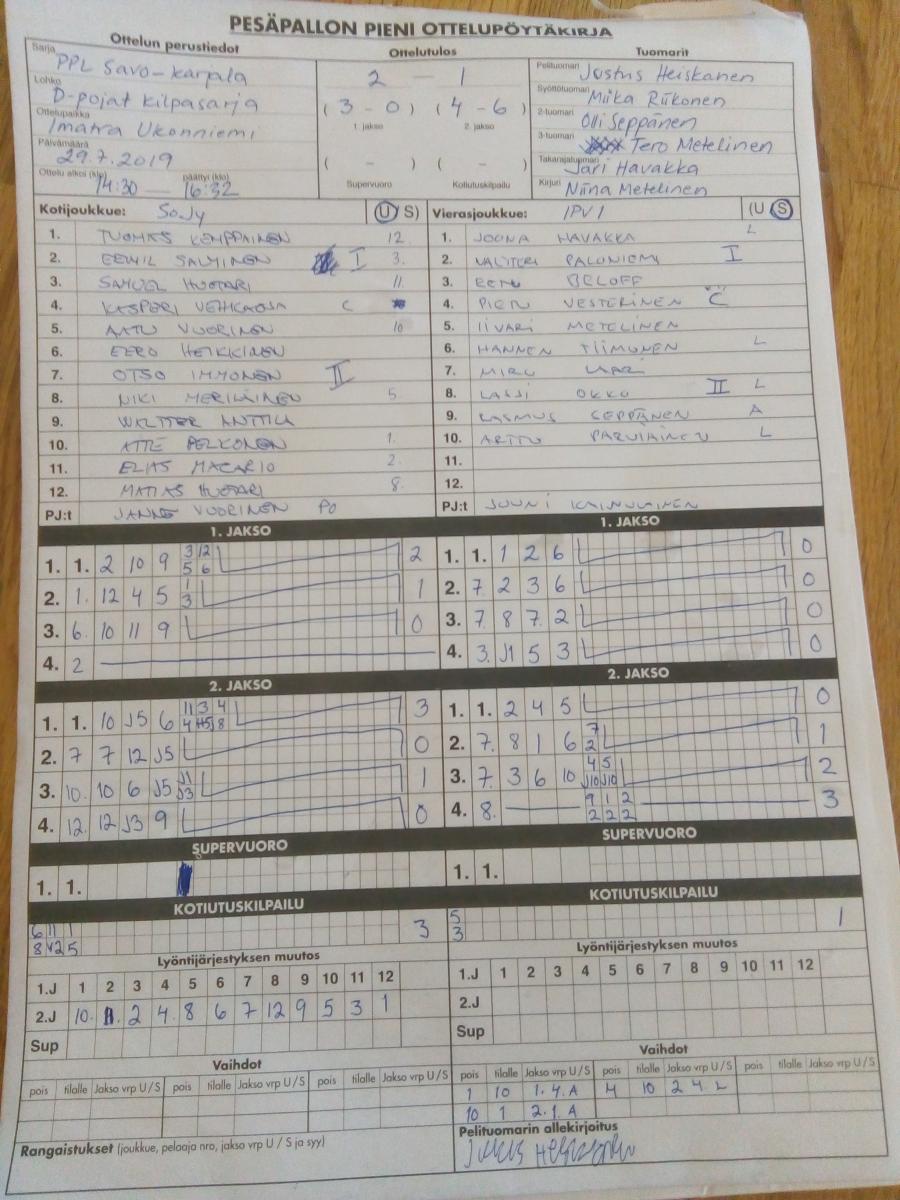 PESÄPALLON PIENI OTTELUPÖYTÄKIRJA
Ottelun perustiedot
Ottelutulos
Tuomarit
Sarja
PPL Savo-Karjala
Lohko
D-pojat kilpasarja
Ottelupaikka
Imatra Ukonniemi
Päivämäärä
29.7.2019
Ottelu alkoi (klo) päättyi (klo)
14:30 — 16:32
2 – 1
( 3 - 0 ) ( 4 - 6 )
1. jakso 2. jakso
( - ) ( - )
Supervuoro Kotiutuskilpailu
Pelituomari Justus Heiskanen
Syöttötuomari Miika Riikonen
2-tuomari Olli Seppänen
3-tuomari Tero Metelinen
Takarajatuomari Jari Havakka
Kirjuri Niina Metelinen
Kotijoukkue: SoJy (U S)
1. TUOMAS KEMPPAINEN 12.
2. EEMIL SALMINEN I 3.
3. SAMUEL HUOTARI 11.
4. KASPERI VEHKAOJA C
5. AATU VUORINEN 10
6. EERO HEIKKINEN
7. OTSO IMMONEN II
8. NIKI MERILÄINEN 5
9. WALTTER ANTTILA
10. ATTE PELKONEN 1.
11. ELIAS MACARIO 2.
12. MATIAS HUOTARI 8.
PJ:t JANNE VUORINEN PO
Vierasjoukkue: IPV 1 (U S)
1. JOONA HAVAKKA L
2. VALTTERI PALONIEMI I
3. EETU BELOFF
4. VESTERINEN C
5. IIVARI METELINEN
6. L
7.
8. LASSI OKKO II L
9. RASMUS SEPPÄNEN A
10. ARTTU PARVIAINEN L
11.
12.
PJ:t JOUNI KAINULAINEN
1. JAKSO
1. 1. 2 10 9 3 12 2
5 6
2. 1. 12 4 5 1 1
3
3. 6. 10 11 9 0
4. 2
1. JAKSO
1. 1. 1 2 6 0
2. 7. 2 3 6 0
3. 7. 8 7 2 0
4. 3. J1 5 3 0
2. JAKSO
1. 1. 10 J5 6 11 3 4 3
4 J8
2. 7 7 12 J5 0
3. 10. 10 6 J5 J1 1
J3
4. 12. 12 J3 9 0
2. JAKSO
1. 1. 2 4 5 0
2. 7. 8 1 6 7 1
2
3. 7. 3 6 10 4 5 2
J10 J10
4. 8. 9 1 2 3
2 2 2
SUPERVUORO
1. 1.
SUPERVUORO
1. 1.
KOTIUTUSKILPAILU
6 11 1 3
8 5
KOTIUTUSKILPAILU
5 1
3
Lyöntijärjestyksen muutos
1.J 1 2 3 4 5 6 7 8 9 10 11 12
2.J 10. 11. 2 4 8 6 7 12 9 5 3 1
Sup
Lyöntijärjestyksen muutos
1.J 1 2 3 4 5 6 7 8 9 10 11 12
2.J
Sup
Vaihdot
pois tilalle Jakso vrp U / S pois tilalle Jakso vrp U / S pois tilalle Jakso vrp U / S
Vaihdot
pois tilalle Jakso vrp U / S pois tilalle Jakso vrp U / S pois tilalle Jakso vrp U / S
1 10 1. 4. A 4 10 2 4. L
10 1 2. 1. A
Rangaistukset (joukkue, pelaaja nro, jakso vrp U / S ja syy)
Pelituomarin allekirjoitus